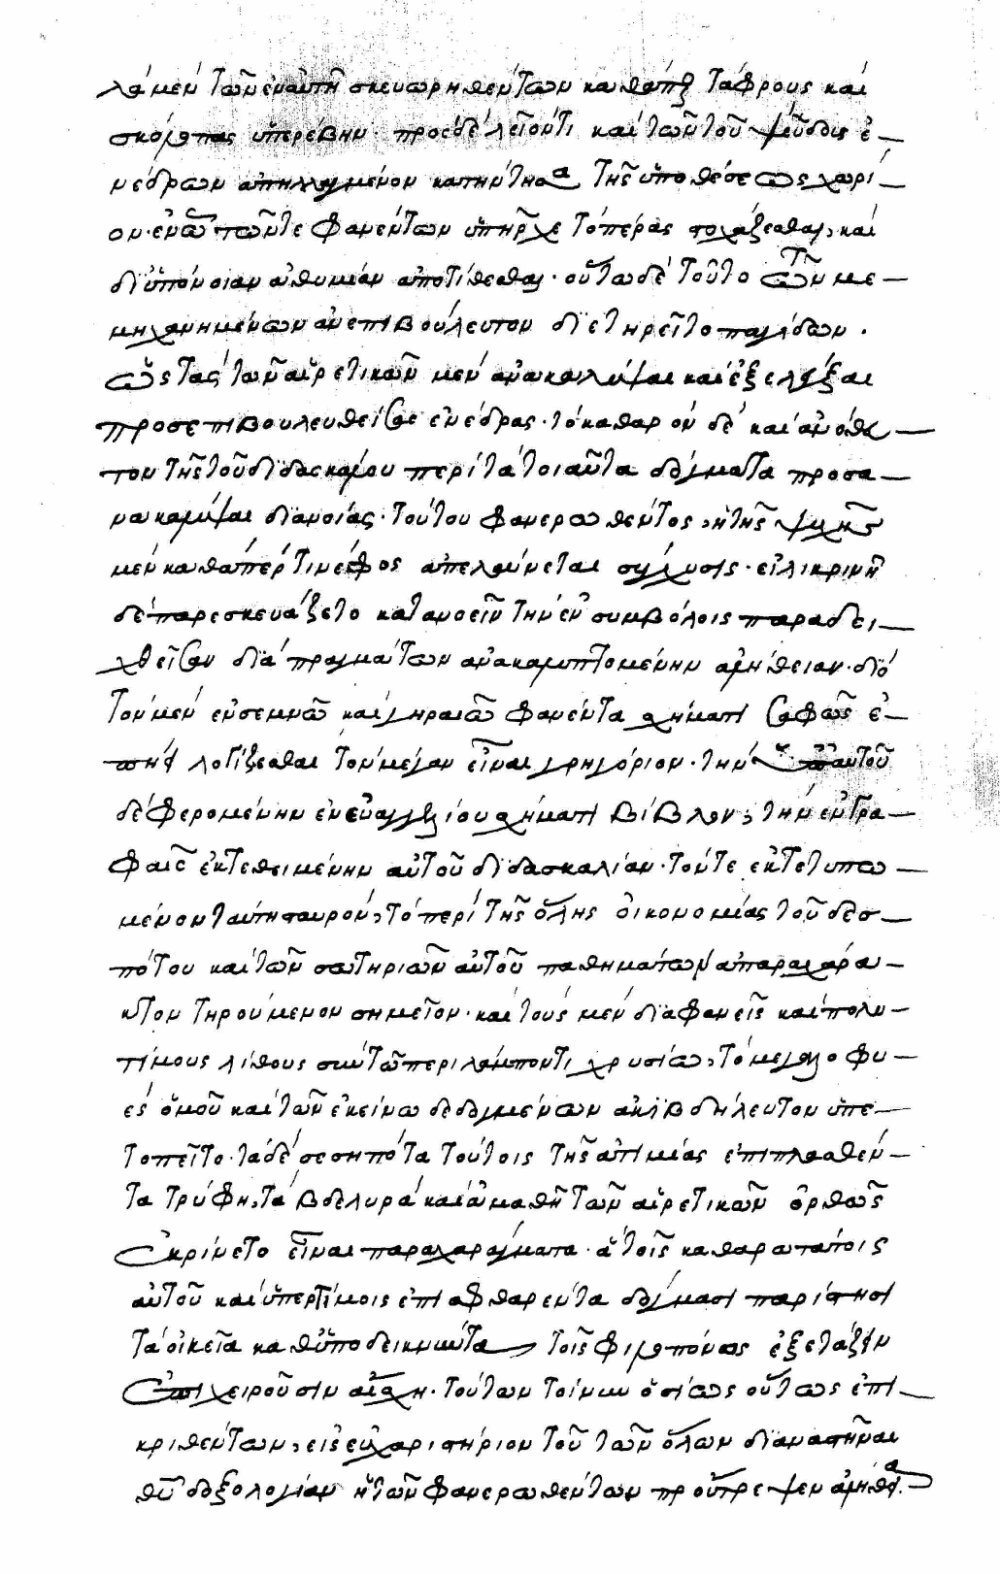 λα μὲν τῶν ἐν αὐτῇ σκευωρηθέντων καθάπερ τάφρους καὶ
σκόλοπας ὑπερέβην· πρὸς δὲ λεῖόν τι καὶ τῶν τοῦ ψεύδους ἐ
νεδρῶν ἀπηλλαγμένον κατήντησα τῆς ὑποθέσεως χωρί
ον· ἐν ᾧ τῶν τε φανέντων ὑπῆρχε τὸ πέρας στοχάζεσθαι, καὶ
δι' ὑπόνοιαν ἀθυμίαν ἀποτίθεσθαι· οὕτω δὲ τοῦτο τῶν με
μηχανημένων ἀνεπιβούλευτον διετηρεῖτο παγίδων·
ὡς τὰς τῶν αἱρετικῶν μὲν ἀνακαλύψαι καὶ ἐξελέγξαι
προσεπιβουλευθείσας ἐνέδρας· τὸ καθαρὸν δὲ καὶ ἀνόθευ
τον τῆς τοῦ διδασκάλου περὶ τὰ τοιαῦτα δόγματα προσα
νακαλύψαι διανοίας· τούτου φανερωθέντος, ἡ τῆς ψυχῆς
μὲν καθάπερ τι νέφος ἀπελαύνεται σύγχυσις· εἰλικρινῆ
δὲ παρεσκευάζετο κατανοεῖν τὴν ἐν συμβόλοις παραδει
χθεῖσαν διὰ πραγμάτων ἀνακαλυπτομένην ἀλήθειαν· διὸ
τὸν μὲν ἐν σεμνῷ καὶ γηραιῷ φανέντα σχήματι σαφῶς ἐ
πῄει λογίζεσθαι τὸν μέγαν εἶναι γρηγόριον· τὴν ὑπ' αὐτοῦ
δὲ φερομένην ἐν εὐαγγελίου σχήματι βίβλον, τὴν ἐν γρα
φαῖς ἐκτεθειμένην αὐτοῦ διδασκαλίαν· τόν τε ἐκτετυπω
μένον ταύτῃ σταυρόν, τὸ περὶ τῆς ὅλης οἰκονομίας τοῦ δεσ
πότου καὶ τῶν σωτηρίων αὐτοῦ παθημάτων ἀπαραχάρα
κτον τηρούμενον σημεῖον· καὶ τοὺς μὲν διαφανεῖς καὶ πολυ
τίμους λίθους σὺν τῷ περιλάμποντι χρυσίῳ, τὸ μεγαλοφυ
ὲς ὁμοῦ καὶ τῶν ἐκείνῳ δεδογμένων ἀκιβδήλευτον ὑπε
τοπεῖτο· τὰ δὲ σεσηπότα τούτοις τῆς ἀτιμίας ἐπιπλασθέν
τα τρύφη, τὰ βδελυρὰ καὶ ἀμαθῆ τῶν αἱρετικῶν ὀρθῶς
ἐκρίνετο εἶναι παραχαράγματα· ἃ τοῖς καθαρωτάτοις
αὐτοῦ καὶ ὑπερτίμοις ἐπιαφθαρέντα δόγμασι παρίστησι
τὰ οἰκεῖα καθυποδεικνύντα τοῖς φιλοπόνως ἐξετάζειν
ἐπιχειροῦσιν αἴσχη· τούτων τοίνυν ὁσίως οὕτως ἐπι
κριθέντων, εἰς εὐχαριστήριον τοῦ τῶν ὅλων διαναστῆναι
θῦ δοξολογίαν ἡ τῶν φανερωθέντων προὔτρεψεν ἀλήθεια.